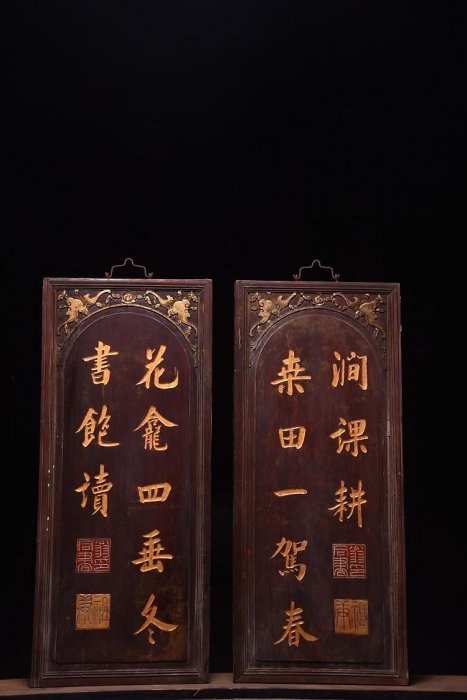 花龕四垂冬
書飽讀
桒田一駕春
澗課耕